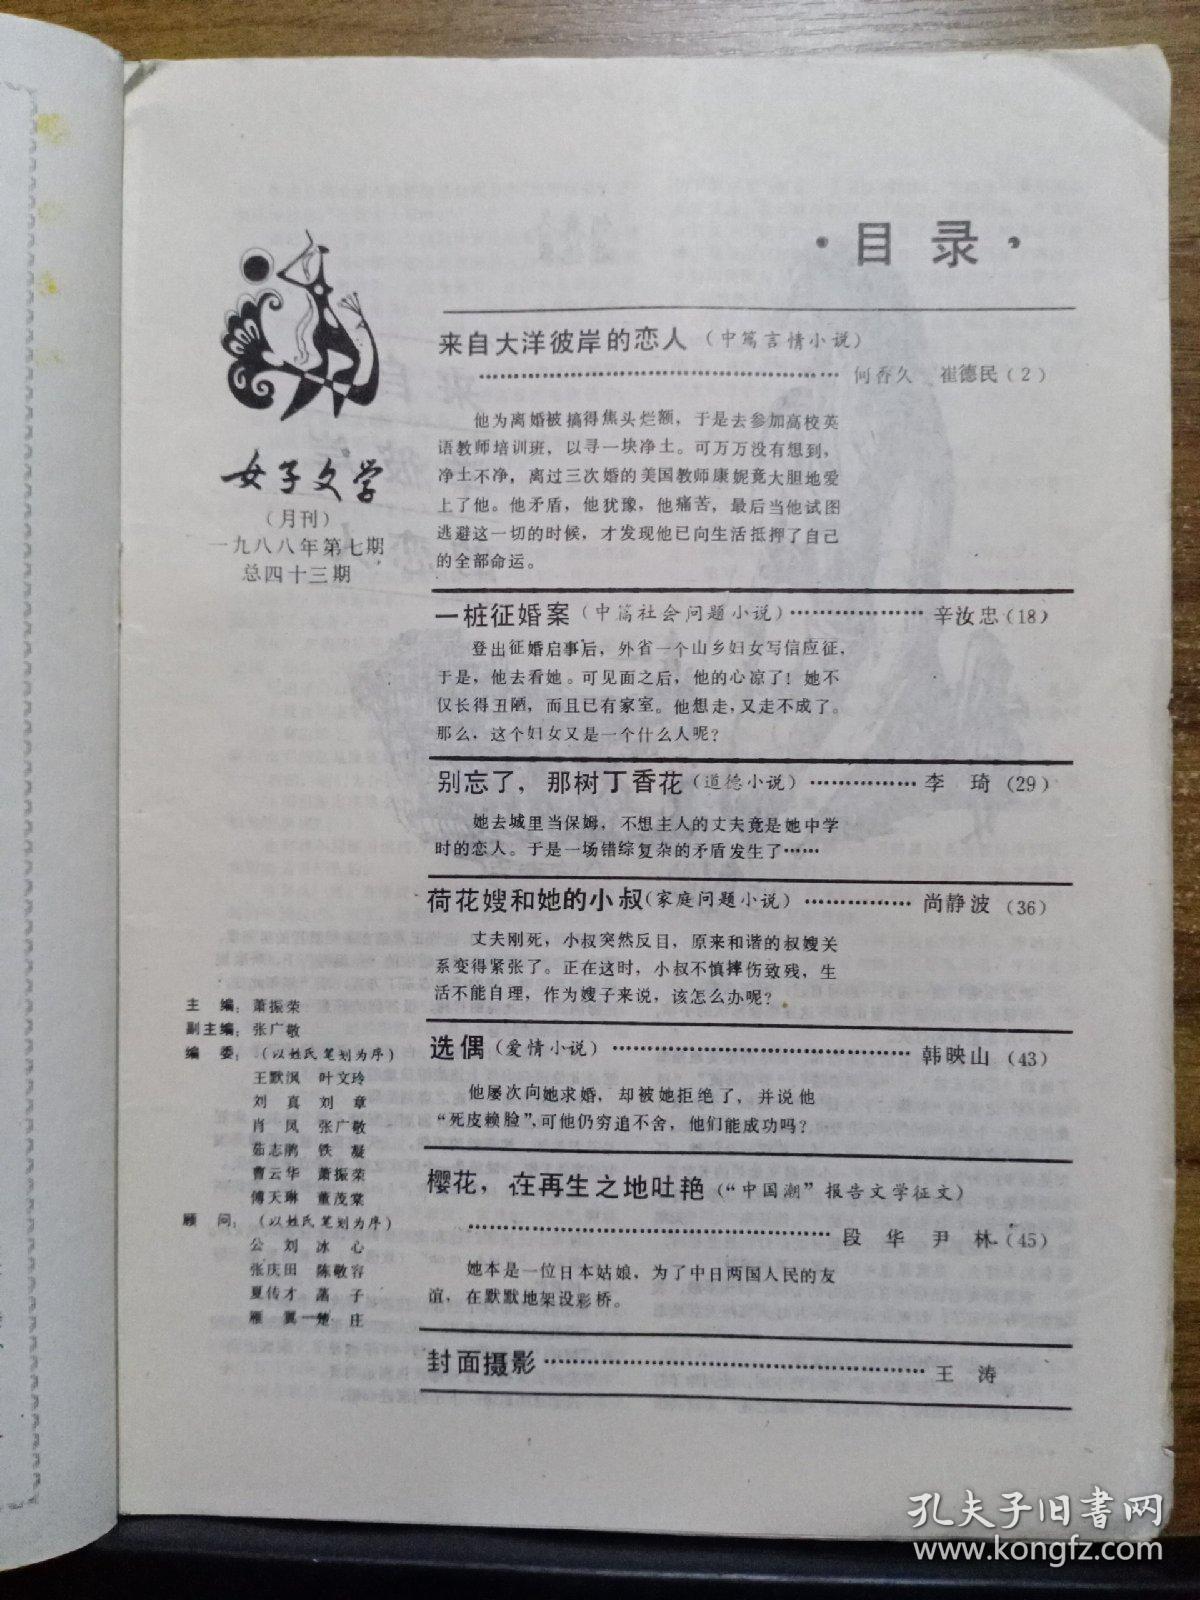 ·目录·
来自大洋彼岸的恋人（中篇言情小说）
……………………………………何香久　崔德民（2）
他为离婚被搞得焦头烂额，于是去参加高校英
语教师培训班，以寻一块净土。可万万没有想到，
净土不净，离过三次婚的美国教师康妮竟大胆地爱
上了他。他矛盾，他犹豫，他痛苦，最后当他试图
逃避这一切的时候，才发现他已向生活抵押了自己
的全部命运。
一桩征婚案（中篇社会问题小说）………………辛汝忠（18）
登出征婚启事后，外省一个山乡妇女写信应征，
于是，他去看她。可见面之后，他的心凉了！她不
仅长得丑陋，而且已有家室。他想走，又走不成了。
那么，这个妇女又是一个什么人呢？
别忘了，那树丁香花（道德小说）……………李　琦（29）
她去城里当保姆，不想主人的丈夫竟是她中学
时的恋人。于是一场错综复杂的矛盾发生了……
荷花嫂和她的小叔（家庭问题小说）……………尚静波（36）
丈夫刚死，小叔突然反目，原来和谐的叔嫂关
系变得紧张了。正在这时，小叔不慎摔伤致残，生
活不能自理，作为嫂子来说，该怎么办呢？
选偶（爱情小说）……………………………………韩映山（43）
他屡次向她求婚，却被她拒绝了，并说他
“死皮赖脸”，可他仍穷追不舍，他们能成功吗？
樱花，在再生之地吐艳（“中国潮”报告文学征文）
……………………………………段　华　尹　林（45）
她本是一位日本姑娘，为了中日两国人民的友
谊，在默默地架设彩桥。
封面摄影……………………………………………王　涛
女子文学
（月刊）
一九八八年第七期
总四十三期
主　编：萧振荣
副主编：张广敬
编　委：（以姓氏笔划为序）
王默沨　叶文玲
刘　真　刘　章
肖　凤　张广敬
茹志鹃　铁　凝
曹云华　萧振荣
傅天琳　董茂棠
顾　问：（以姓氏笔划为序）
公　刘　冰　心
张庆田　陈敬容
夏传才　菡　子
雁　翼　楚　庄
孔夫子旧书网
www.kongfz.com